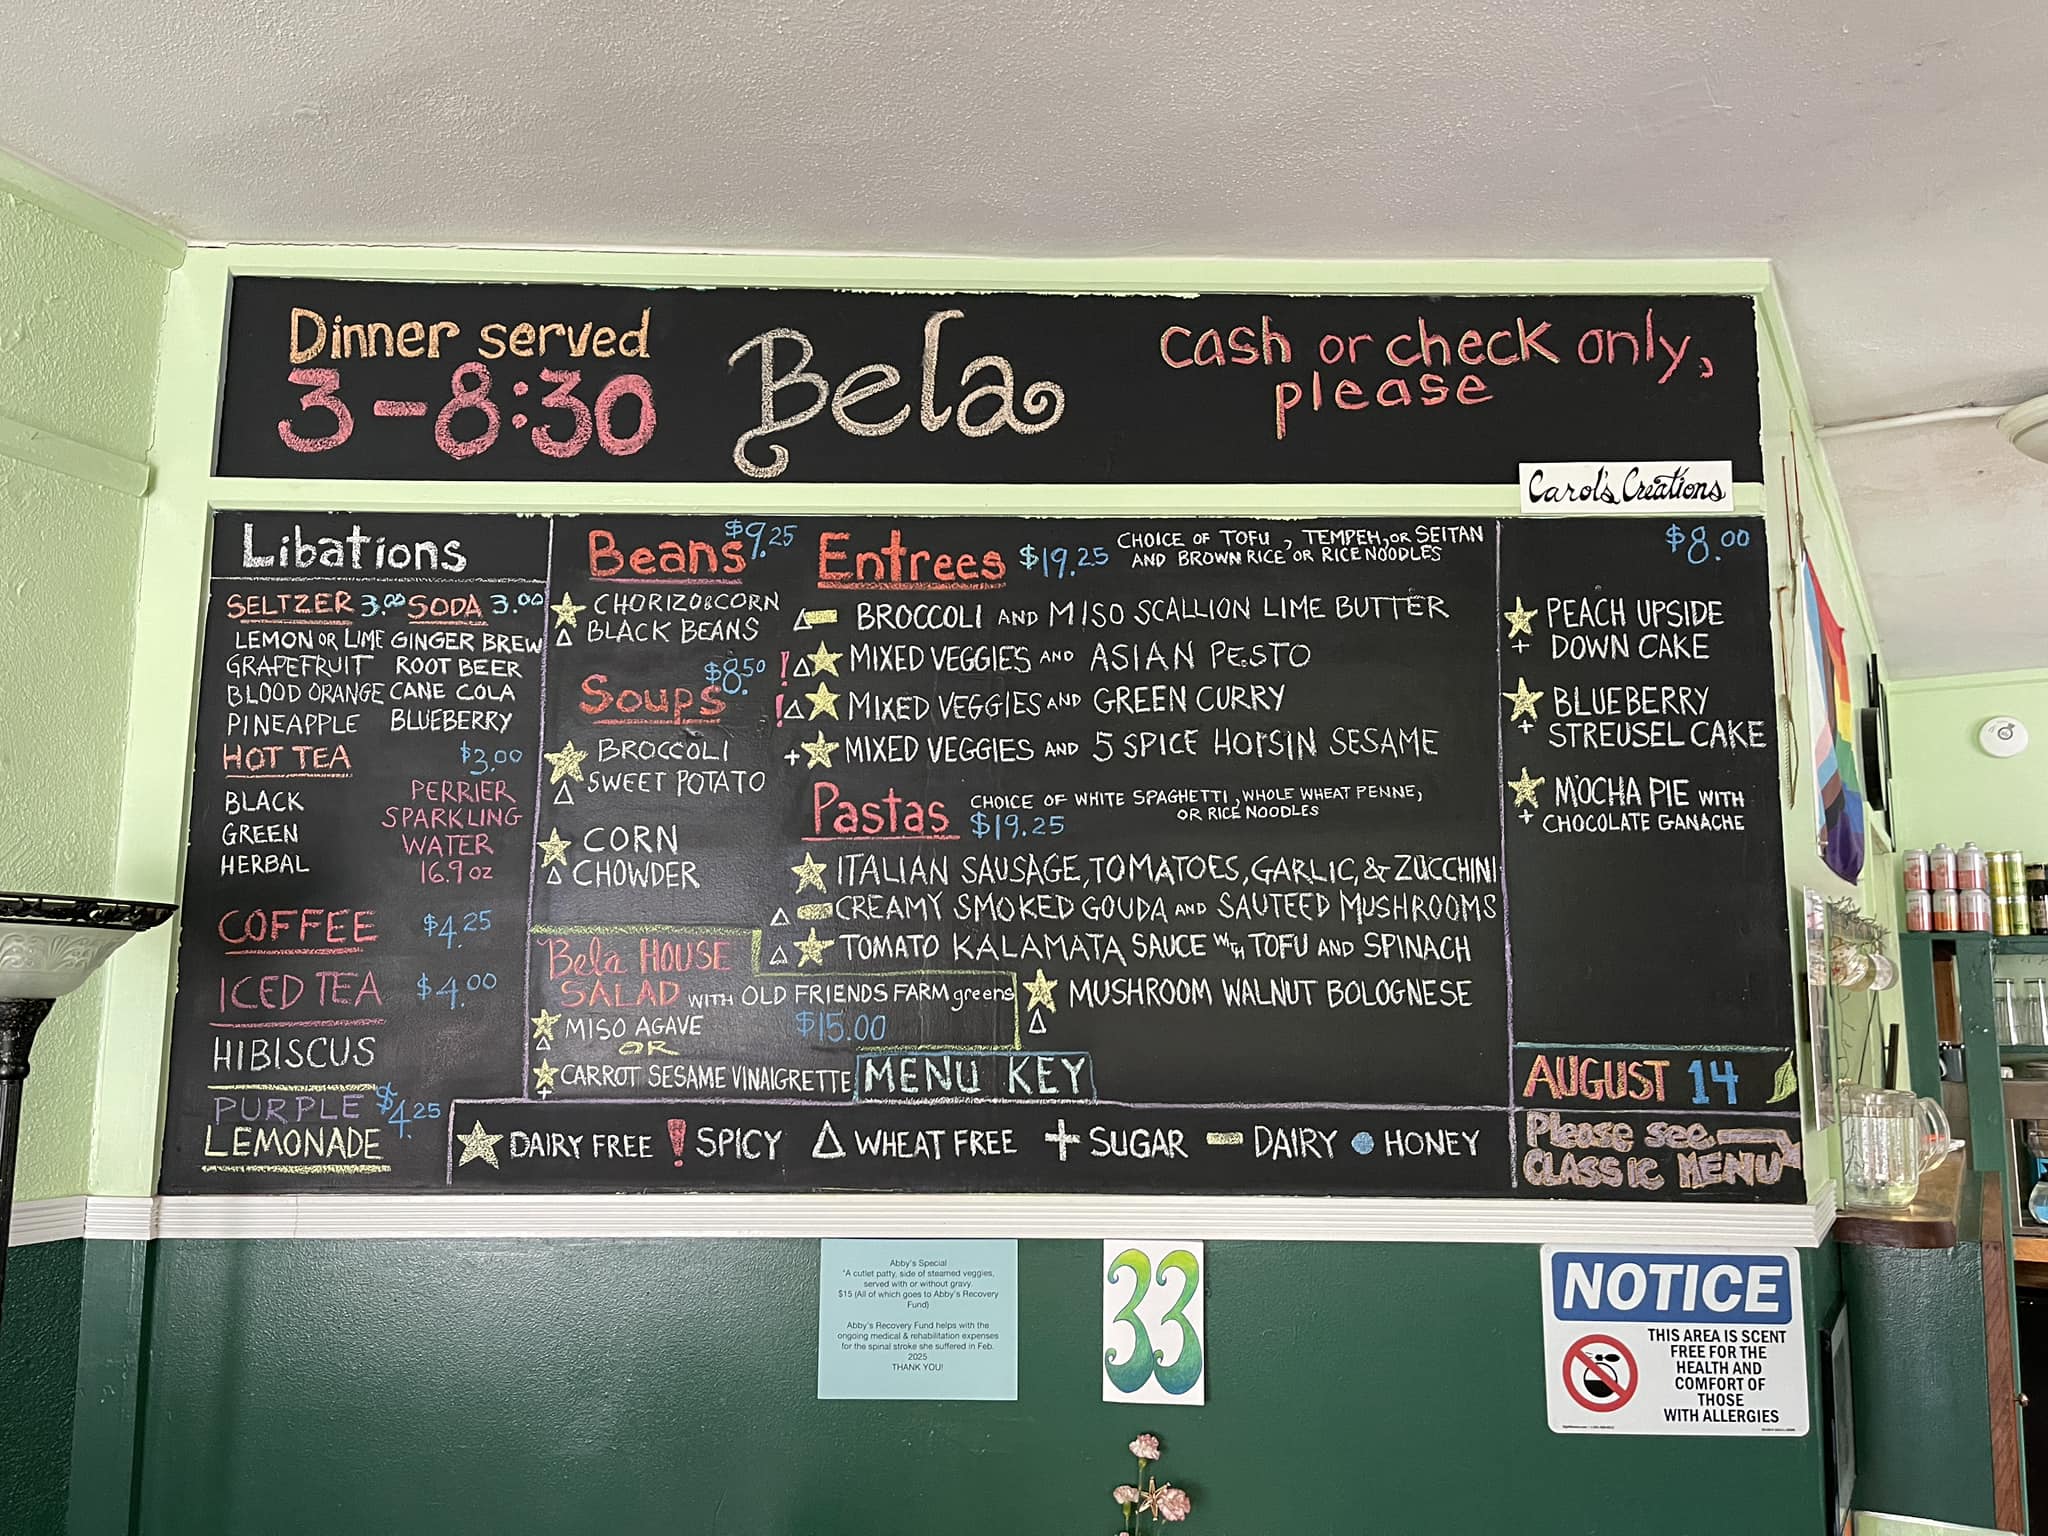 Dinner served
3-8:30
Bela
Cash or check only,
please
Carol's Creations
Libations
SELTZER 3.00 SODA 3.00
LEMON OR LIME GINGER BREW
GRAPEFRUIT ROOT BEER
BLOOD ORANGE CANE COLA
PINEAPPLE BLUEBERRY
HOT TEA $3.00
BLACK
GREEN
HERBAL
PERRIER
SPARKLING
WATER
16.9 oz
COFFEE $4.25
ICED TEA $4.00
HIBISCUS
PURPLE $4.25
LEMONADE
Beans $9.25
CHORIZO & CORN
BLACK BEANS
Soups $8.50
BROCCOLI
SWEET POTATO
CORN
CHOWDER
Bela HOUSE
SALAD WITH OLD FRIENDS FARM greens
MISO AGAVE $15.00
OR
CARROT SESAME VINAIGRETTE
Entrees $19.25 CHOICE OF TOFU, TEMPEH, OR SEITAN
AND BROWN RICE OR RICE NOODLES
BROCCOLI AND MISO SCALLION LIME BUTTER
! MIXED VEGGIES AND ASIAN PESTO
! MIXED VEGGIES AND GREEN CURRY
+ MIXED VEGGIES AND 5 SPICE HOISIN SESAME
Pastas CHOICE OF WHITE SPAGHETTI, WHOLE WHEAT PENNE,
OR RICE NOODLES
$19.25
ITALIAN SAUSAGE, TOMATOES, GARLIC, & ZUCCHINI
CREAMY SMOKED GOUDA AND SAUTEED MUSHROOMS
TOMATO KALAMATA SAUCE WITH TOFU AND SPINACH
MUSHROOM WALNUT BOLOGNESE
$8.00
PEACH UPSIDE
+ DOWN CAKE
BLUEBERRY
+ STREUSEL CAKE
MOCHA PIE WITH
+ CHOCOLATE GANACHE
MENU KEY
DAIRY FREE ! SPICY WHEAT FREE + SUGAR - DAIRY HONEY
AUGUST 14
Please see
CLASSIC MENU
Abby's Special
"A cutlet patty, side of steamed veggies,
served with or without gravy.
$15 (All of which goes to Abby's Recovery
Fund)
Abby's Recovery Fund helps with the
ongoing medical & rehabilitation expenses
for the spinal stroke she suffered in Feb.
2025
THANK YOU!
33
NOTICE
THIS AREA IS SCENT
FREE FOR THE
HEALTH AND
COMFORT OF
THOSE
WITH ALLERGIES